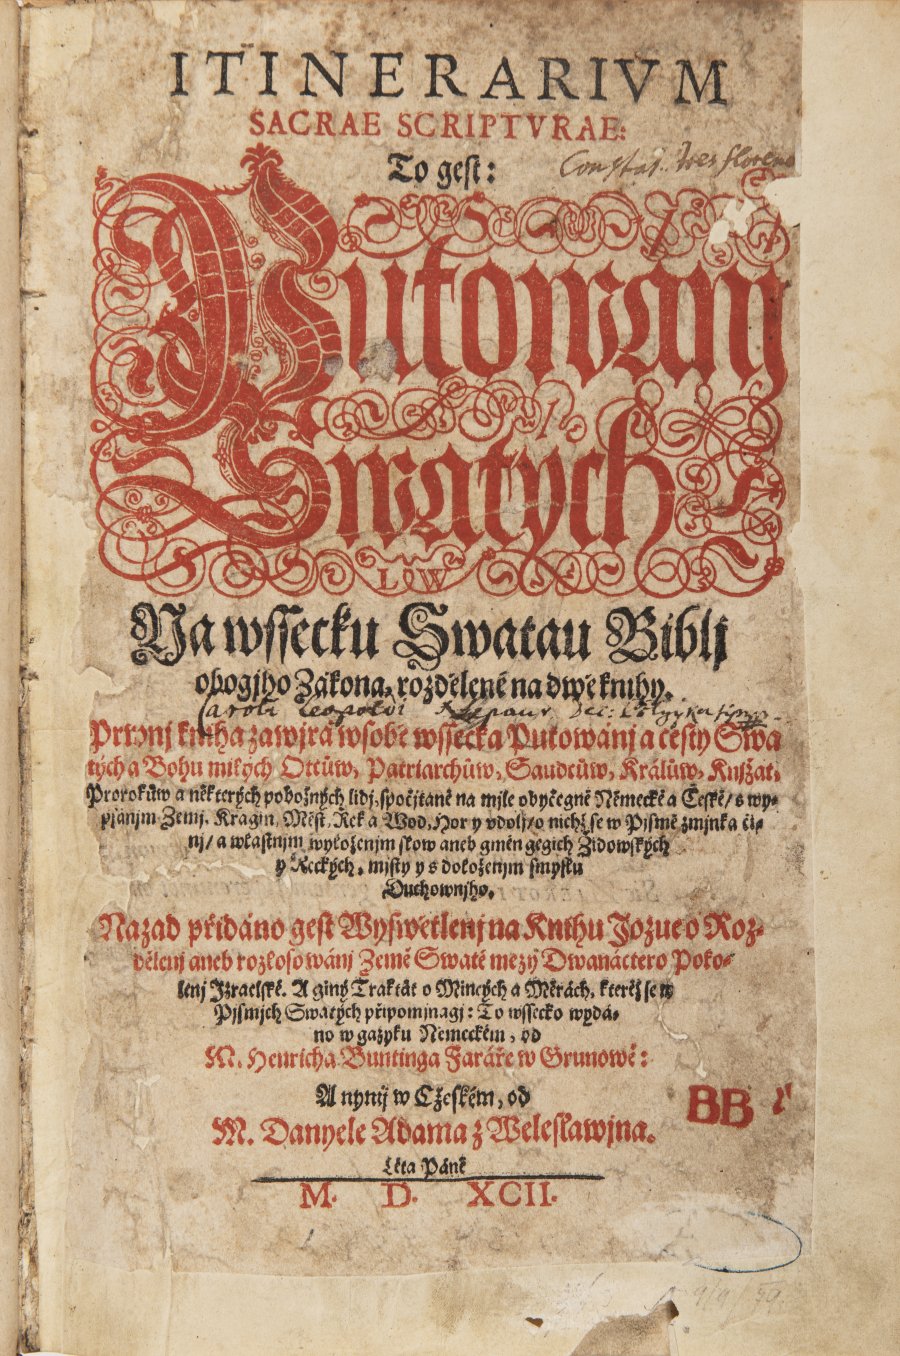 ITINERARIVM
SACRAE SCRIPTVRAE:
To gest:
Constat. tres floreno
Putowanj
Swatých
LW
Na wssecku Swatau Biblj
obogjho Zákona, rozdělené na dwě knihy.
Caroli Leopoldi
Prwnj kniha zawjrá w sobě wssecka Putowánj a cesty Swa
tých a Bohu milých Otcůw, Patriarchůw, Saudcůw, Králůw, Knjžat,
Prorokůw a některých pobožných lidj, spočjtané na mjle obyčegné Německé a České/ s wy-
psánjm Zemj, Kragin, Měst, Řek a Wod, Hor y vdolj/ o nichž se w Pjsmě zmjnka či-
nj/ a wlastnjm wyloženjm slow aneb gmén gegich Židowských
y Řeckých, mjsty y s doloženjm smyslu
Duchownjho.
Nazad přidáno gest Wyswětlenj na Knihu Jozue o Roz-
dělenj aneb rozlosowánj Země Swaté mezý Dwanáctero Poko-
lenj Izraelské. A giný Traktát o Mincých a Měrách, kteréž se w
Pjsmjch Swatých připomjnagj: To wssecko wydá-
no w gazyku Německém, od
M. Henricha Buntinga Faráře w Grunowě:
A nynij w Cžeském, od
M. Danyele Adama z Weleslawjna.
BB
Léta Páně
M. D. XCII.